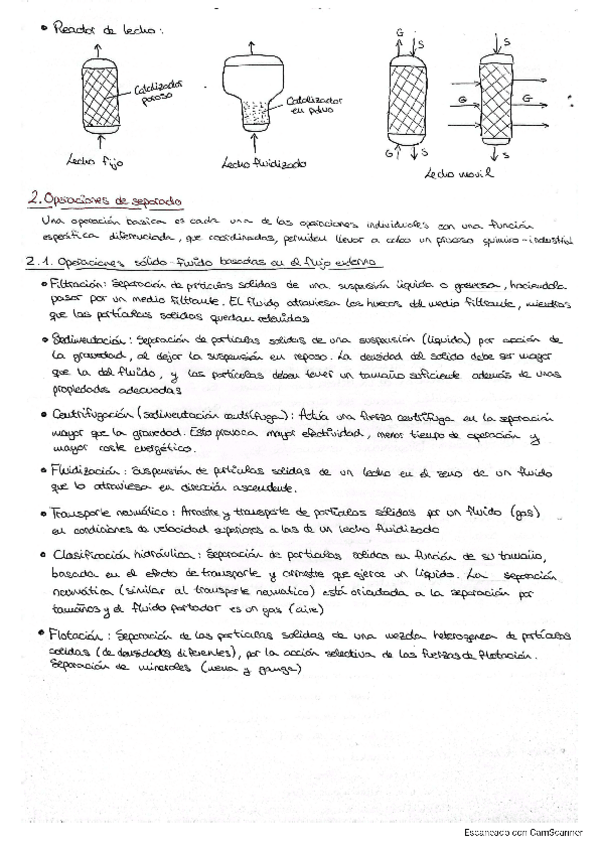 • Reactor de lecho:
G
S
S
Catalizador
poroso
Catalizador
en polvo
G
G
G
S
S
Lecho fijo
Lecho fluidizado
Lecho movil
2. Operaciones de separado
Una operación basica es cada una de las operaciones individuales con una función
específica diferenciada, que coordinadas, permiten llevar a cabo un proceso químico-industrial
2.1. Operaciones sólido-fluido basadas en el flujo externo
• Filtración: Separación de partículas solidas de una suspensión líquida o gaseosa, haciendola
pasar por un medio filtrante. El fluido atraviesa los huecos del medio filtrante, mientras
que las partículas solidas quedan retenidas
• Sedimentación: Separación de partículas solidas de una suspensión (líquida) por acción de
la gravedad, al dejar la suspensión en reposo. La densidad del solido debe ser mayor
que la del fluido, y las partículas deben tener un tamaño suficiente además de unas
propiedades adecuadas
• Centrifugación (sedimentación centrífuga): Actúa una fuerza centrífuga en la separación
mayor que la gravedad. Esto provoca mayor efectividad, menor tiempo de operación y
mayor coste energético.
• Fluidización: Suspensión de partículas solidas de un lecho en el seno de un fluido
que lo atraviesa en dirección ascendente.
• Transporte neumático: Arrastre y transporte de partículas sólidas por un fluido (gas)
en condiciones de velocidad superiores a las de un lecho fluidizado
• Clasificación hidráulica: Separación de partículas solidas en función de su tamaño,
basada en el efecto de transporte y arrastre que ejerce un líquido. La separación
neumática (similar al transporte neumatico) está orientada a la separación por
tamaños y el fluido portador es un gas (aire)
• Flotación: Separación de las partículas solidas de una mezcla heterogenea de partículas
solidas (de densidades diferentes), por la acción selectiva de las fuerzas de flotación.
Separación de minerales (mena y ganga)
Escaneado con CamScanner